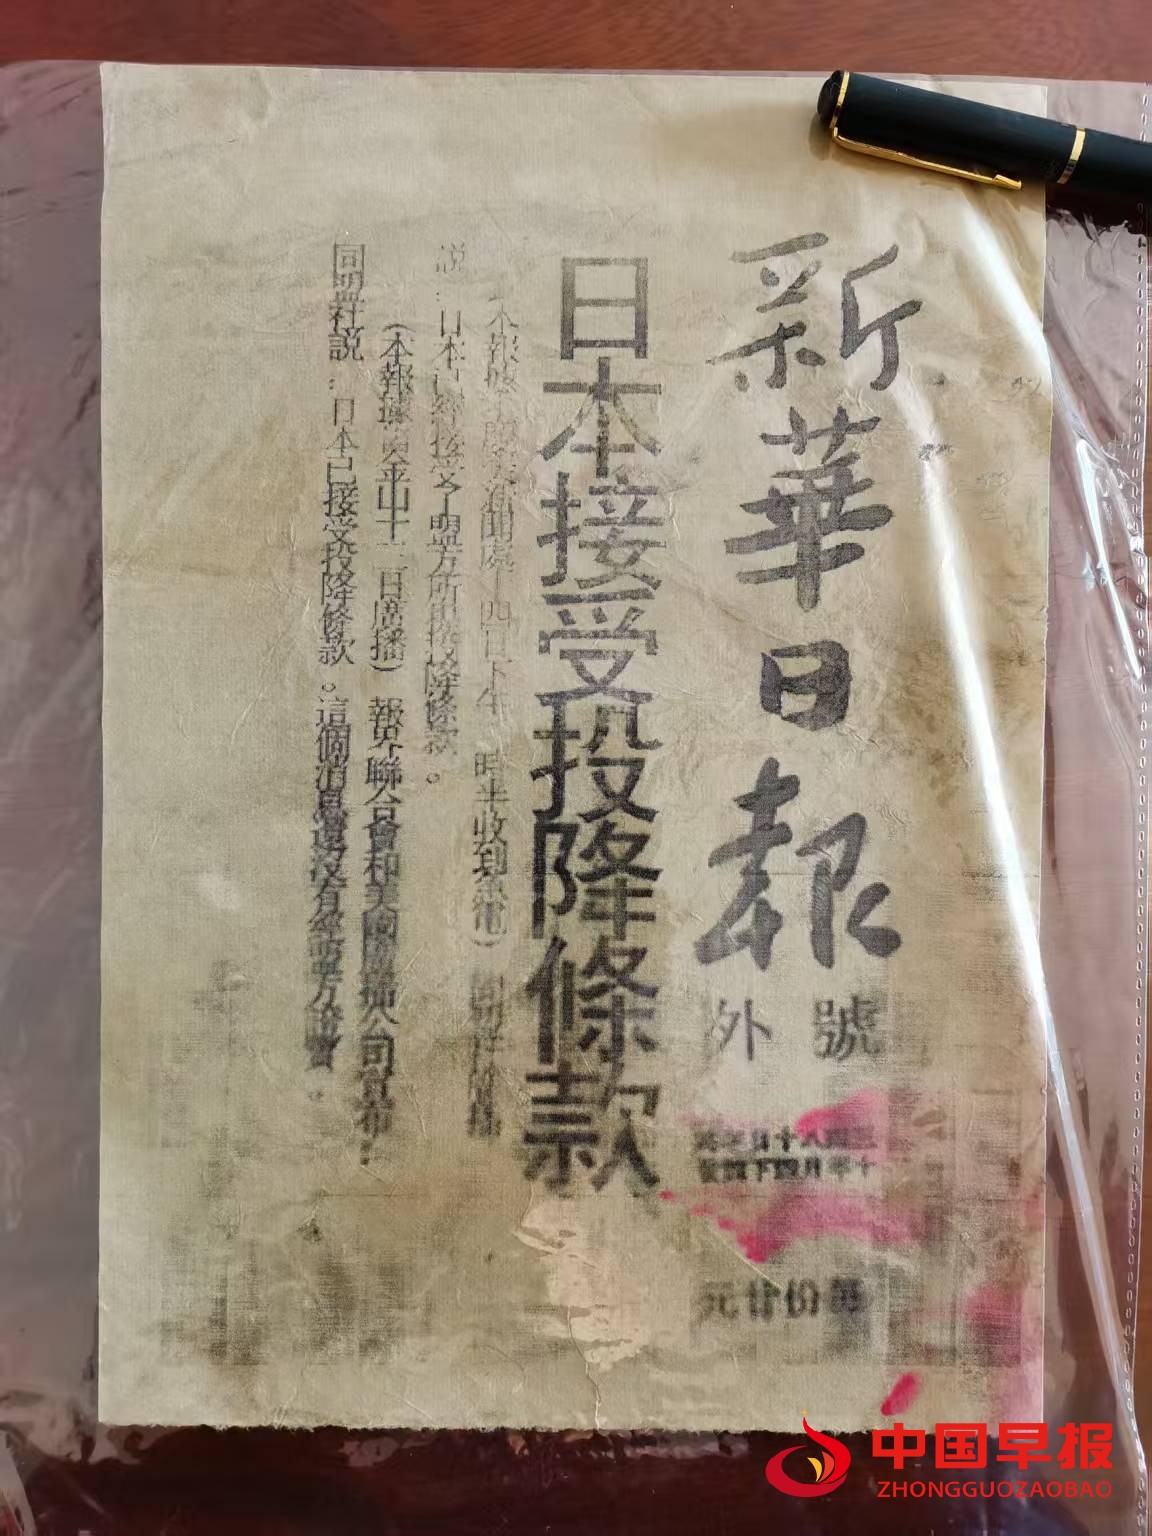 新華日報
號外
三十四年八月十四日下
每份廿元
日本接受投降條款
本報據 聞處十四日下午 時半收到 電)同盟社廣播
説:日本已經接受了盟方所提投降條款。
(本報據舊金山十三日廣播)報界聯合會和美國廣播公司宣布:
同盟社説:日本已接受投降條款。這個消息還沒有經盟方證實。
中国早报
ZHONGGUOZAOBAO